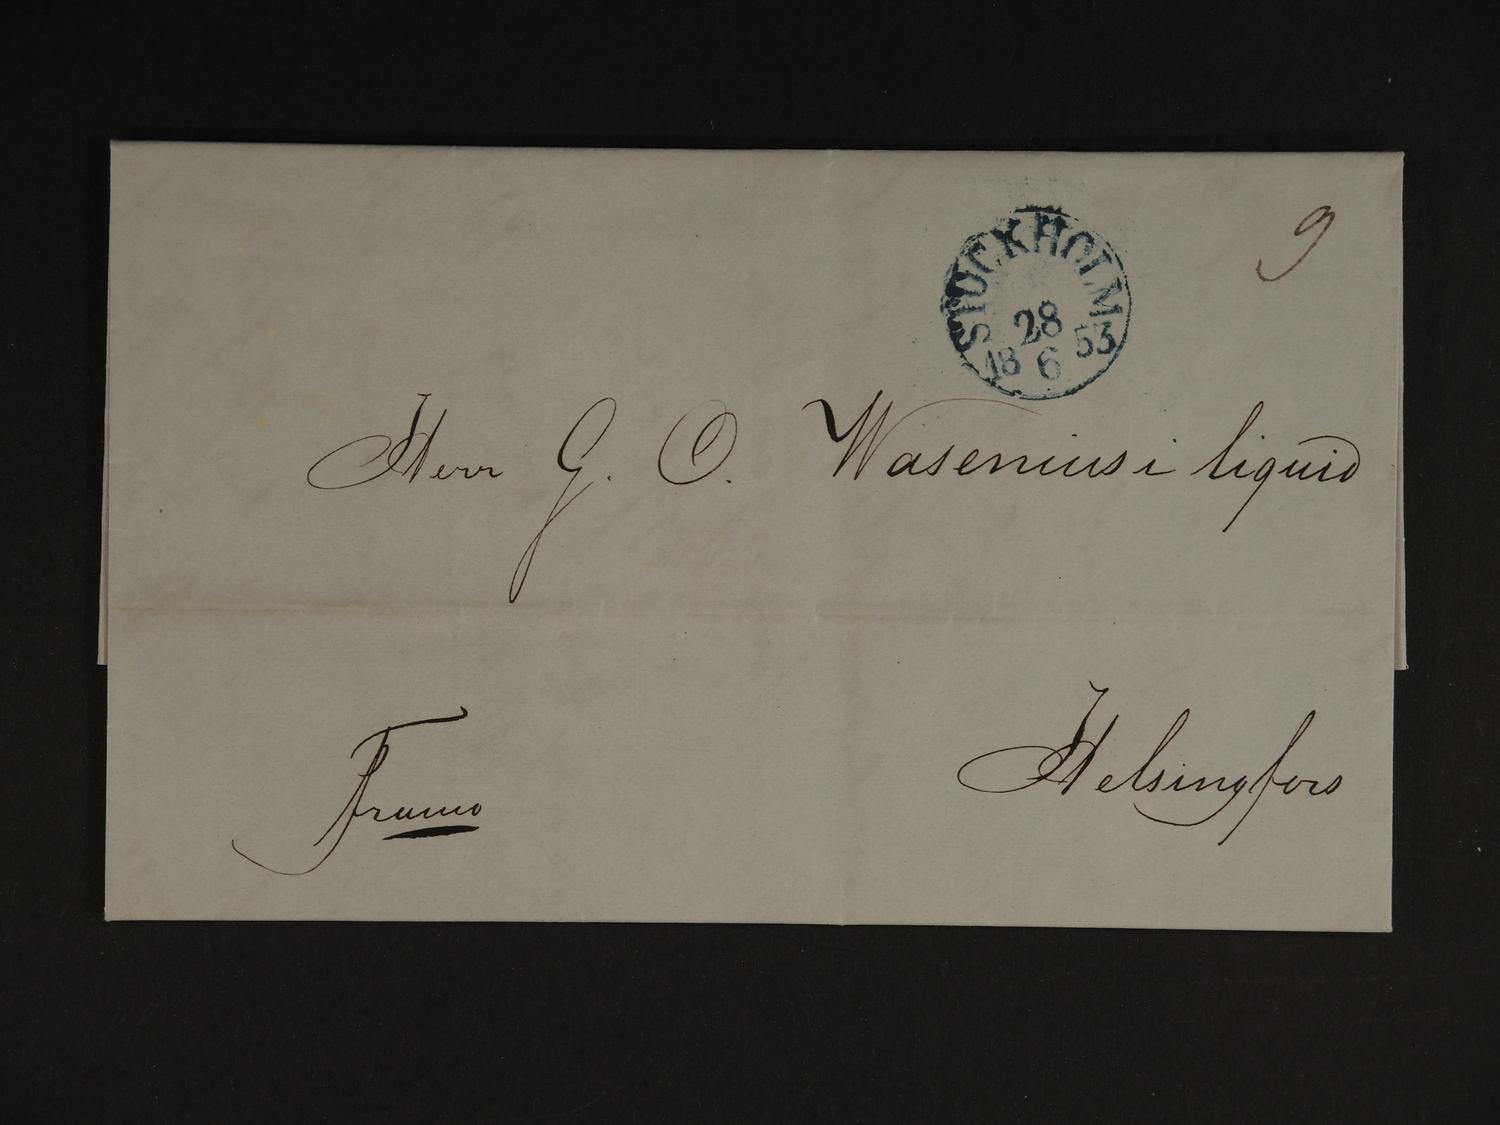 9
STOCKHOLM
28
18 6 53
Herr G. O. Wasenius i liquid
Franco
Helsingfors